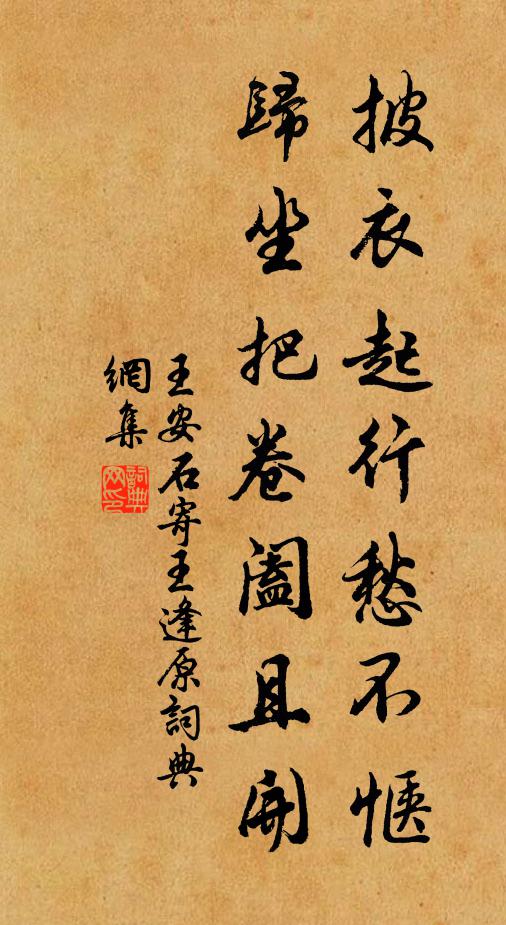 披衣起行愁不愜
歸坐把卷闔且開
王安石寄王逢原詞典
網集
詞典網印